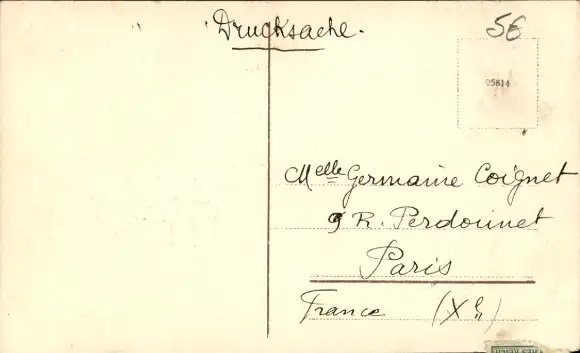 Drucksache.
5E
05814
Melle Germaine Coignet
9 R. Perdonnet
Paris
France (Xe)